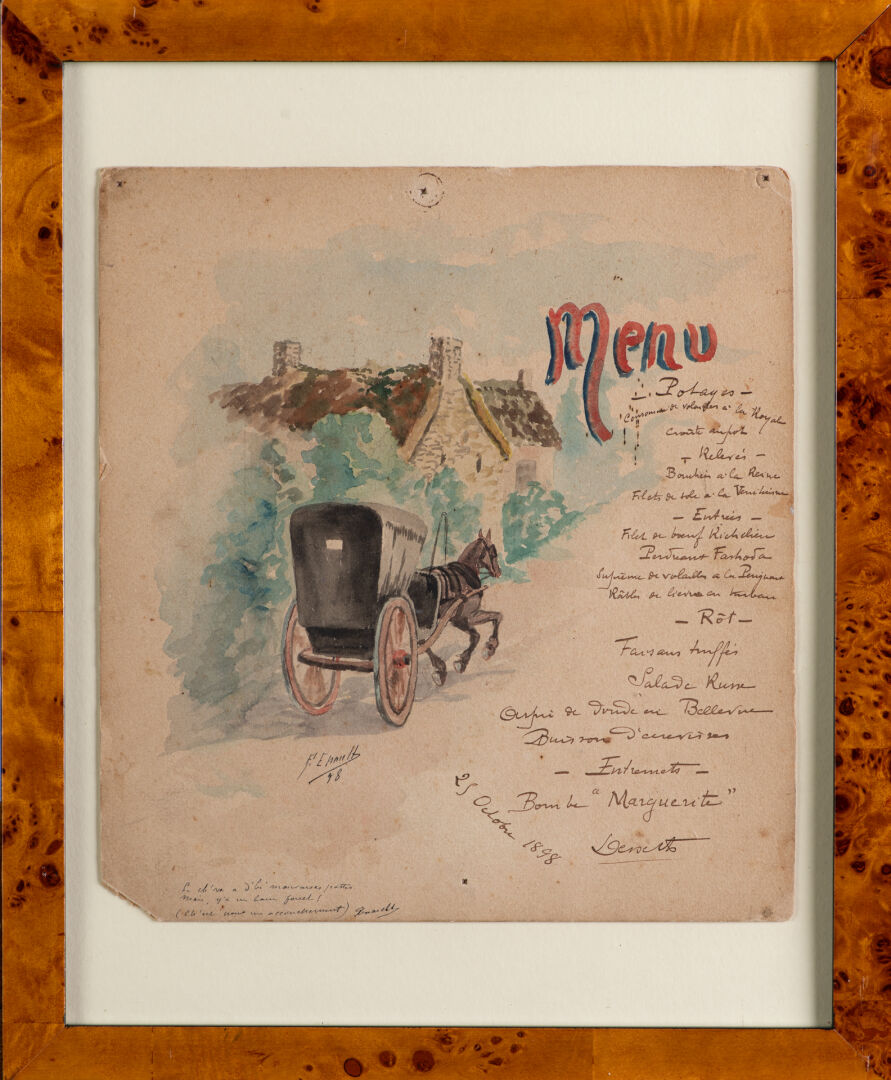 Menu
- Potages -
Consommé de volailles à la Royale
croûte au pot
- Relevés -
Bouchées à la Reine
Filets de sole à la Vénitienne
- Entrées -
Filet de bœuf Richelieu
Perdreaux Fashoda
Suprême de volailles à la
Râbles de lièvre en turban
- Rôt -
Faisans truffés
Salade Russe
Aspic de dinde en Bellevue
Buisson d'écrevisses
- Entremets -
Bombe "Marguerite"
Desserts
25 Octobre 1898
98
Le ch'va a d'bi mauvaises pattes
Mais, y'a un bien
accouchement)